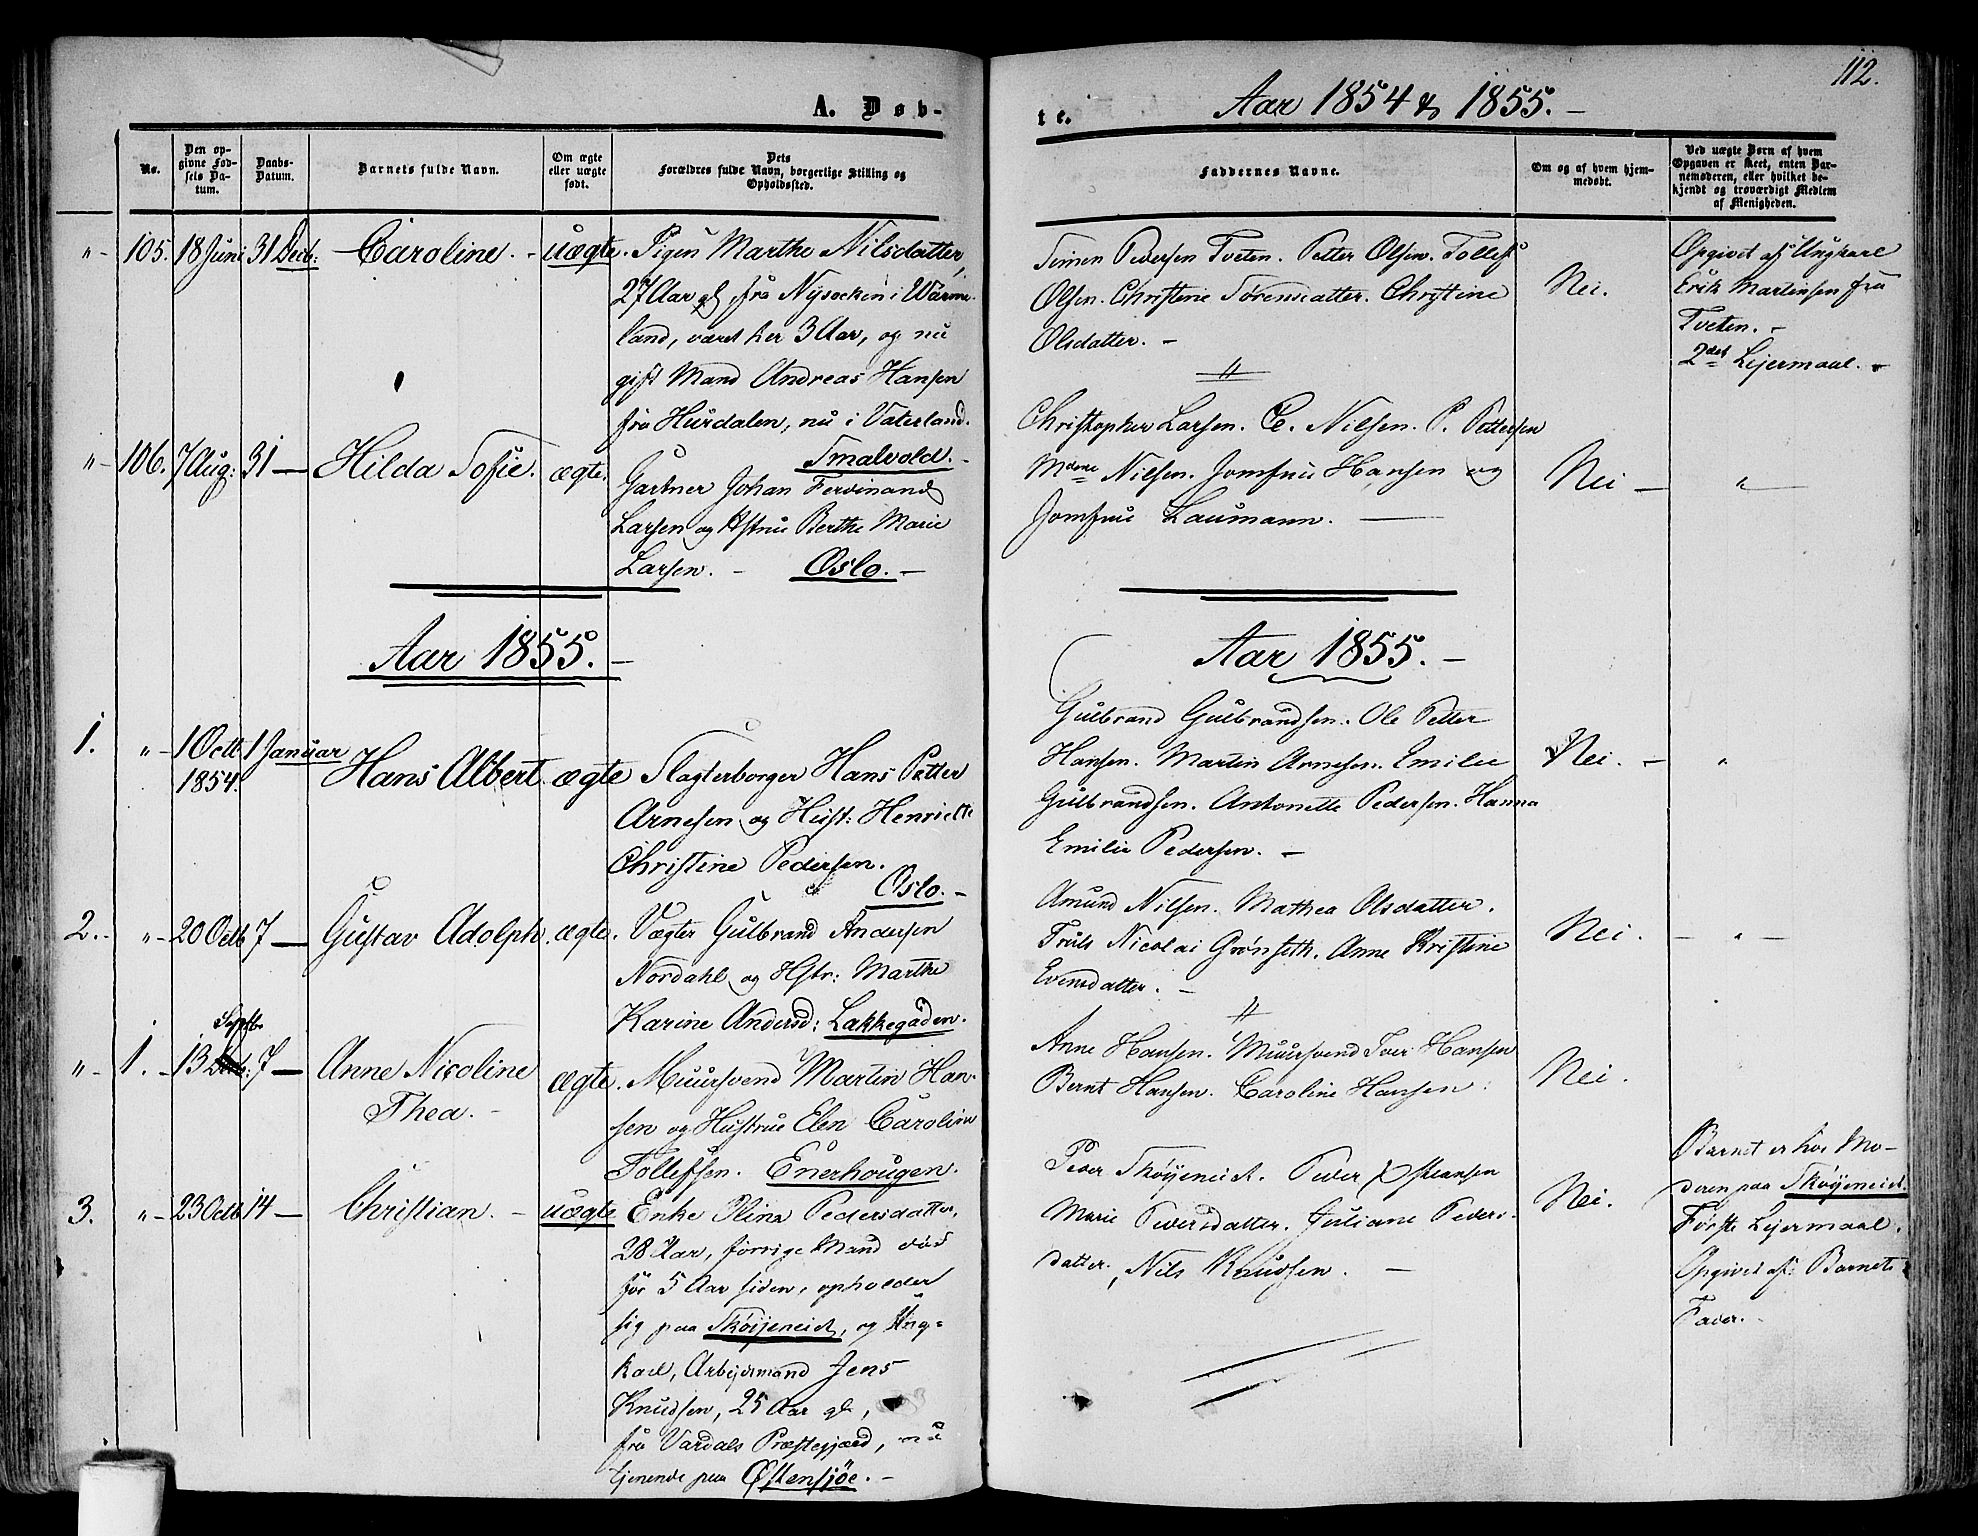 112.
A. Døb-
te.
Aar 1854 & 1855. -
No.
Den op-
givne Fød-
sels Da-
tum.
Daabs-
Datum.
Barnets fulde Navn.
Om ægte
eller uægte
født.
Dets
Forældres fulde Navn, borgerlige Stilling og
Opholdssted.
Faddernes Navne.
Om og af hvem hjem-
medøbt.
Ved uægte Børn af hvem
Opgaven er skeet, enten Bar-
nemoderen, eller hvilket be-
kjendt og troværdigt Medlem
af Menigheden.
"- 105. 18 Juni 31 Decb: Caroline. - uægte. Pigen Marthe Nilsdatter,
27 Aar gl, fra Nysocken i Wärme-
land, været her 3 Aar, og nu
gift Mand Andreas Hansen
fra Hurdalen, nu i Vaterland.
Smalvold. -
Simen Pedersen Tveten. Petter Olsen. Tollef
Olsen. Christine Sørensdatter. Christine
Olsdatter. -
Nei.
Opgivet af Ungkarl
Erik Martinsen fra
Tveten. -
2det Lejermaal. -
"- 106. 7 Aug: 31 - Hilda Sofie. ægte.
Gartner Johan Ferdinand
Larsen og Hstrue Berthe Marie
Larsen. - Oslo. -
Christopher Larsen. C. Nilsen. P. Pettersen
Mdme Nilsen. Jomfrue Hansen og
Jomfrue Laumann. -
Nei - "
Aar 1855. -
Aar 1855. -
1. "- 1 Octb 1 Januar
1854.
Hans Albert. ægte Slagterborger Hans Petter
Arnesen og Hust: Henriette
Christine Pedersen.
Oslo. -
Gulbrand Gulbrandsen. Ole Petter
Hansen. Martin Arnesen. Emilie
Gulbrandsen. Antonette Pedersen. Hanna
Emilie Pedersen. -
Nei. - "
2. - "- 20 Octb 7 - Gustav Adolph. ægte. Vægter Gulbrand Andersen
Nordahl og Hstr: Marthe
Karine Andersd: Lakkegaden.
Amund Nilsen. Mathea Olsdatter.
Truls Nicolai Grønseth. Anne Kristine
Evensdatter. -
Nei. - " -
Septb.
"- 1. - 13 7 - Anne Nicoline
Thea. -
ægte. Muursvend Martin Han-
sen og Hustrue Elen Caroline
Tollefsen. Enerhougen.
Anne Hansen. Muursvend Iver Hansen
Bernt Hansen. Caroline Hansen.
Nei.
3. "- 23 Octb 14 - Christian. - uægte Enke Pedersdatter,
28 Aar, forrige Mand død
for 5 Aar siden, opholder
sig paa Skøijeneiet, og Ung-
karl, Arbejdsmand Jens
Knudsen, 25 Aar gl,
fra Vardals Præstegjæld, nu
tjenende paa Østensjøe. -
Peder Skøijeneiet. Peder Østeansen
Marie Pedersdatter. Juliane Peders-
datter., Nils Knudsen. -
Nei.
Barnet er hos Mo-
deren paa Skøijeneiet.
Første Lejermaal.
Opgivet af: Barnets
Fader. -